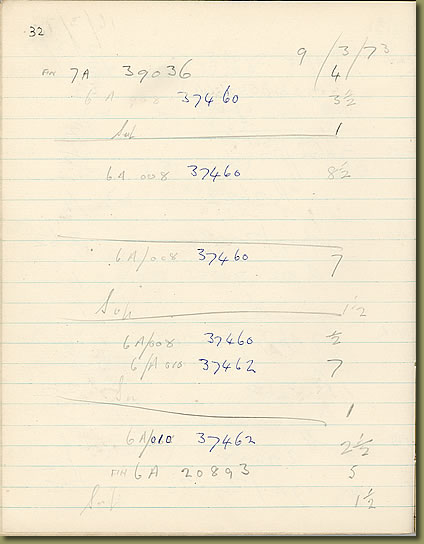 32
9/3/73
AN 7A 39036 4
6A 008 37460 3½
Sup 1
6A 008 37460 8½
6A/008 37460 7
Sup 1½
6A/008 37460 ½
6/A 010 37462 7
1
6A/010 37462 2½
6A 20893 5
1½